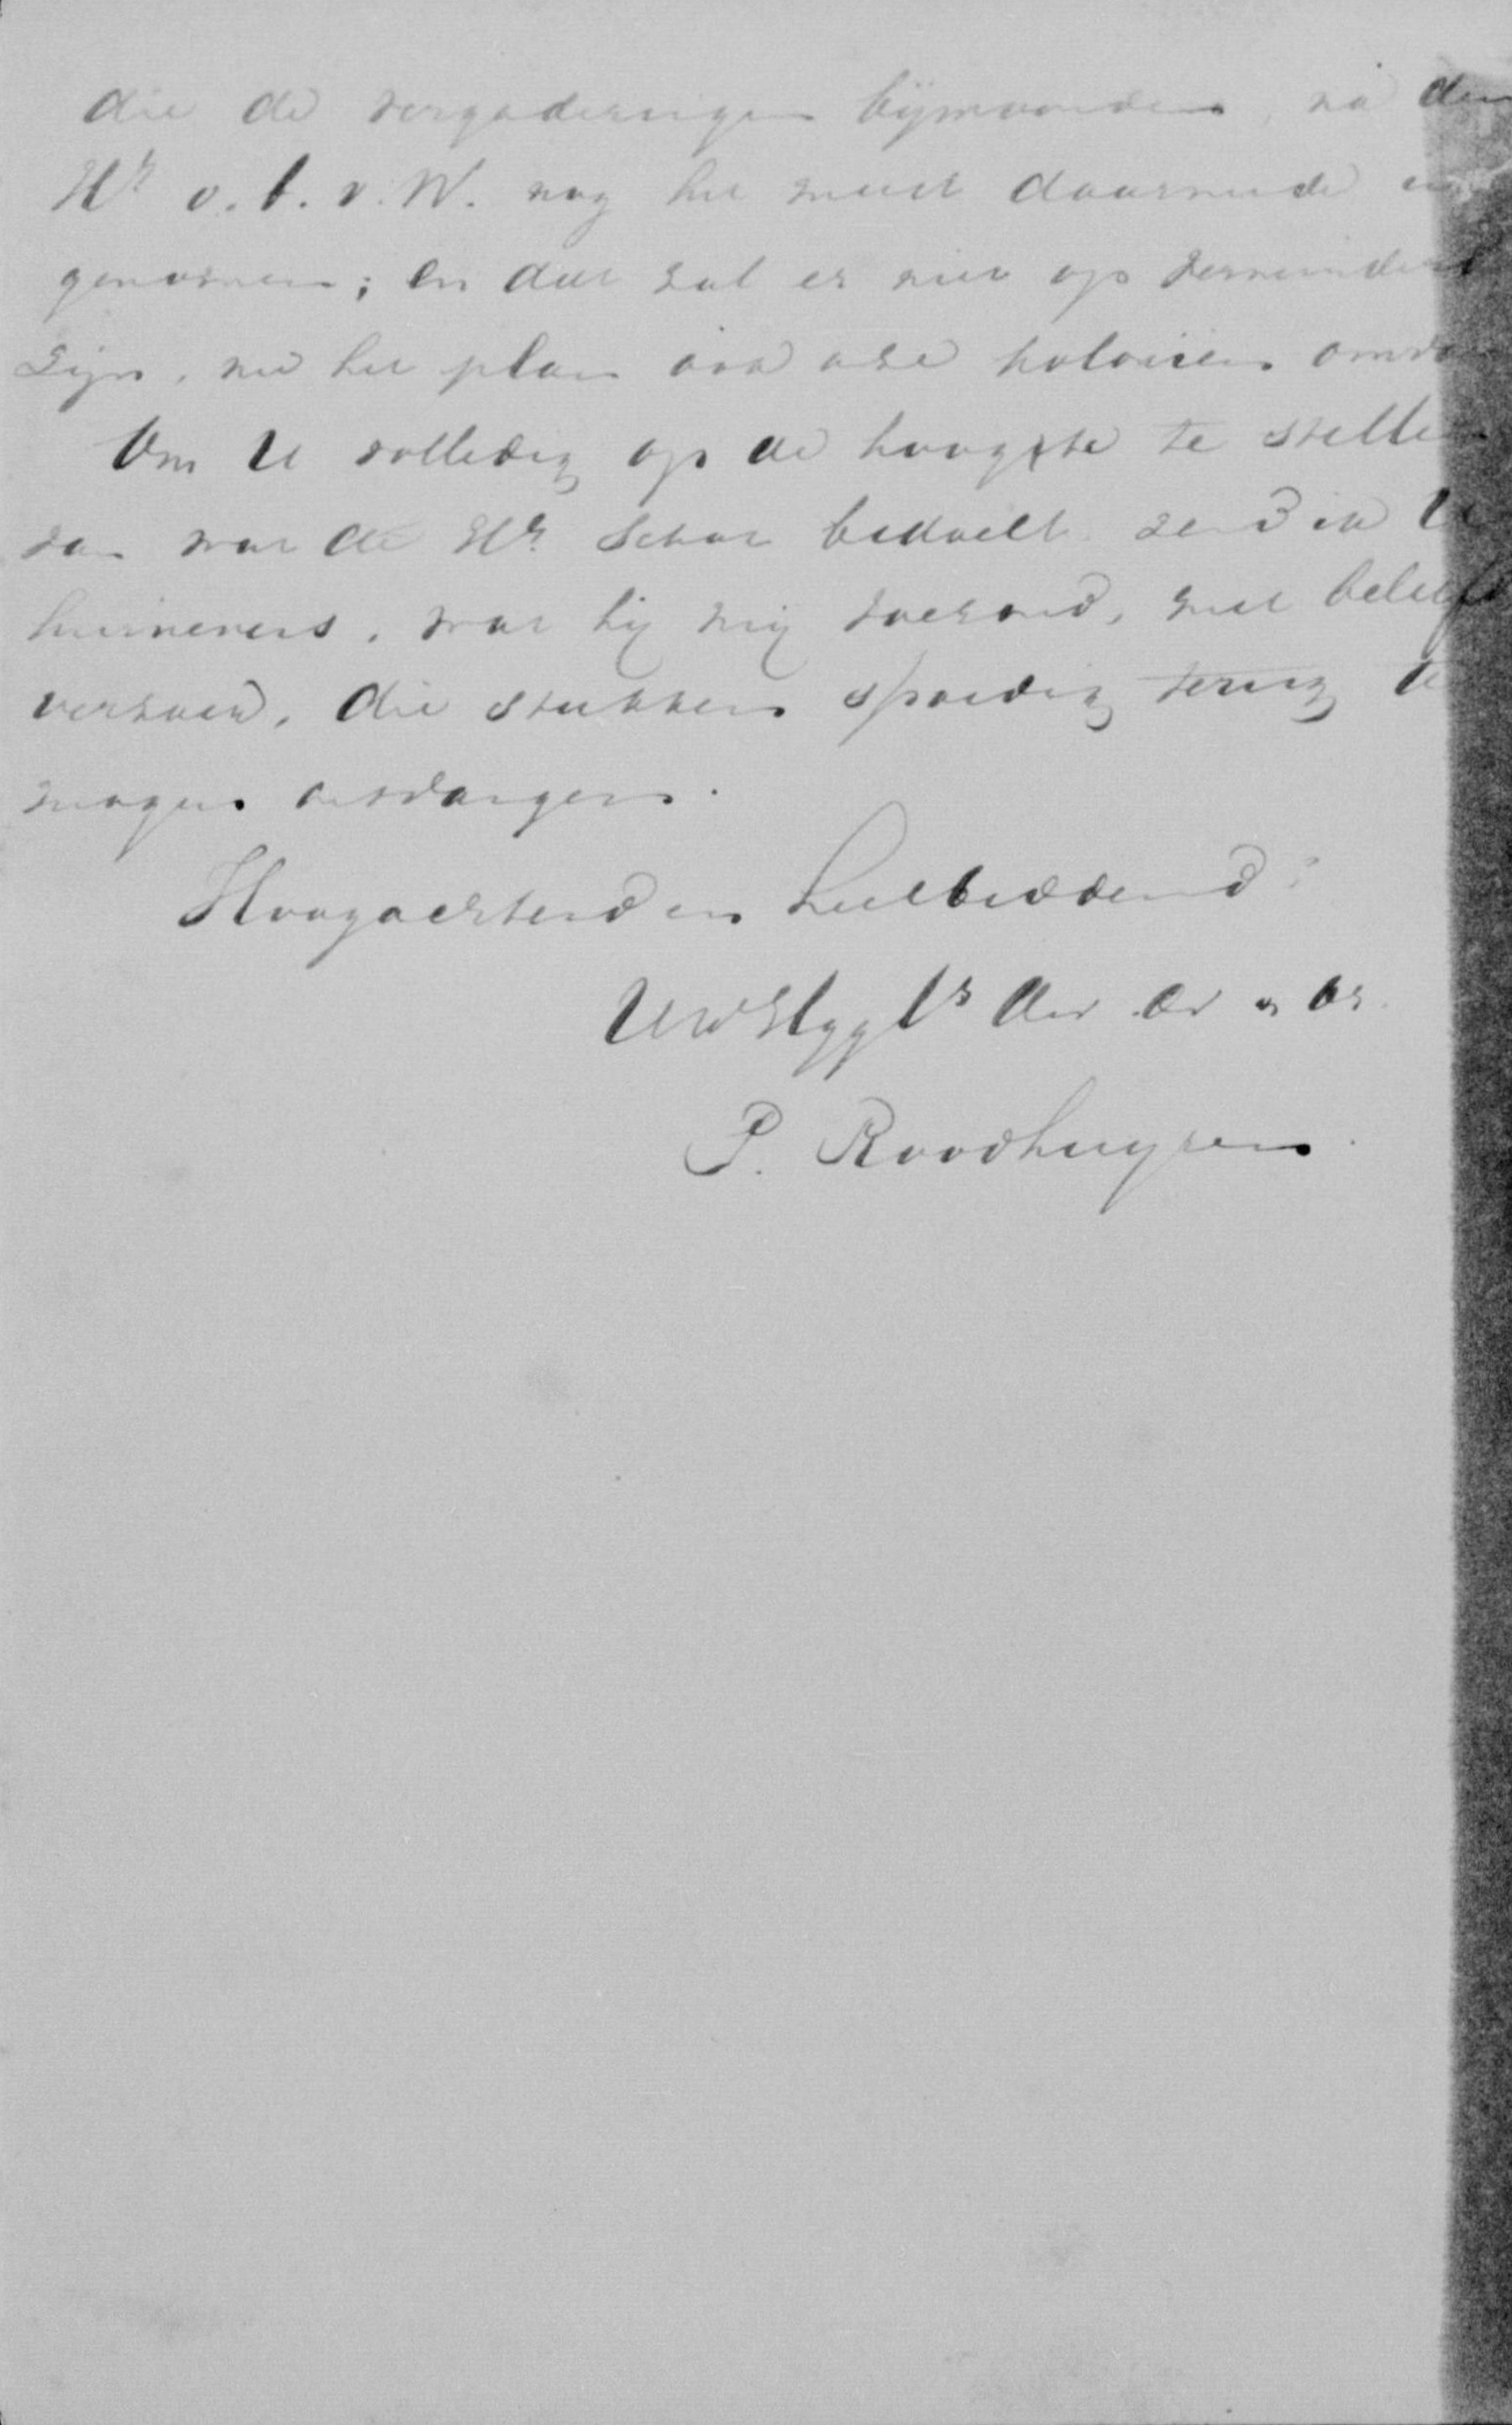 die de vergaderingen bijwoonden, na den
Hr v. B. v. W. nog het meest daarmede in
genomen; en dat zal er niet op verminderd
zijn, nu het plan ook onze koloniën omvat
Om U volledig op de hoogste te stellen
van wat de Hr Schot bedoelt zend ik U
hiernevens, wat hij mij toezond, met beleefd
verzoek, die stukken spoedig terug te
mogen ontvangen.
Hoogachtend en heilbiddend:
Uw dw en br.
P. Roodhuyzen.